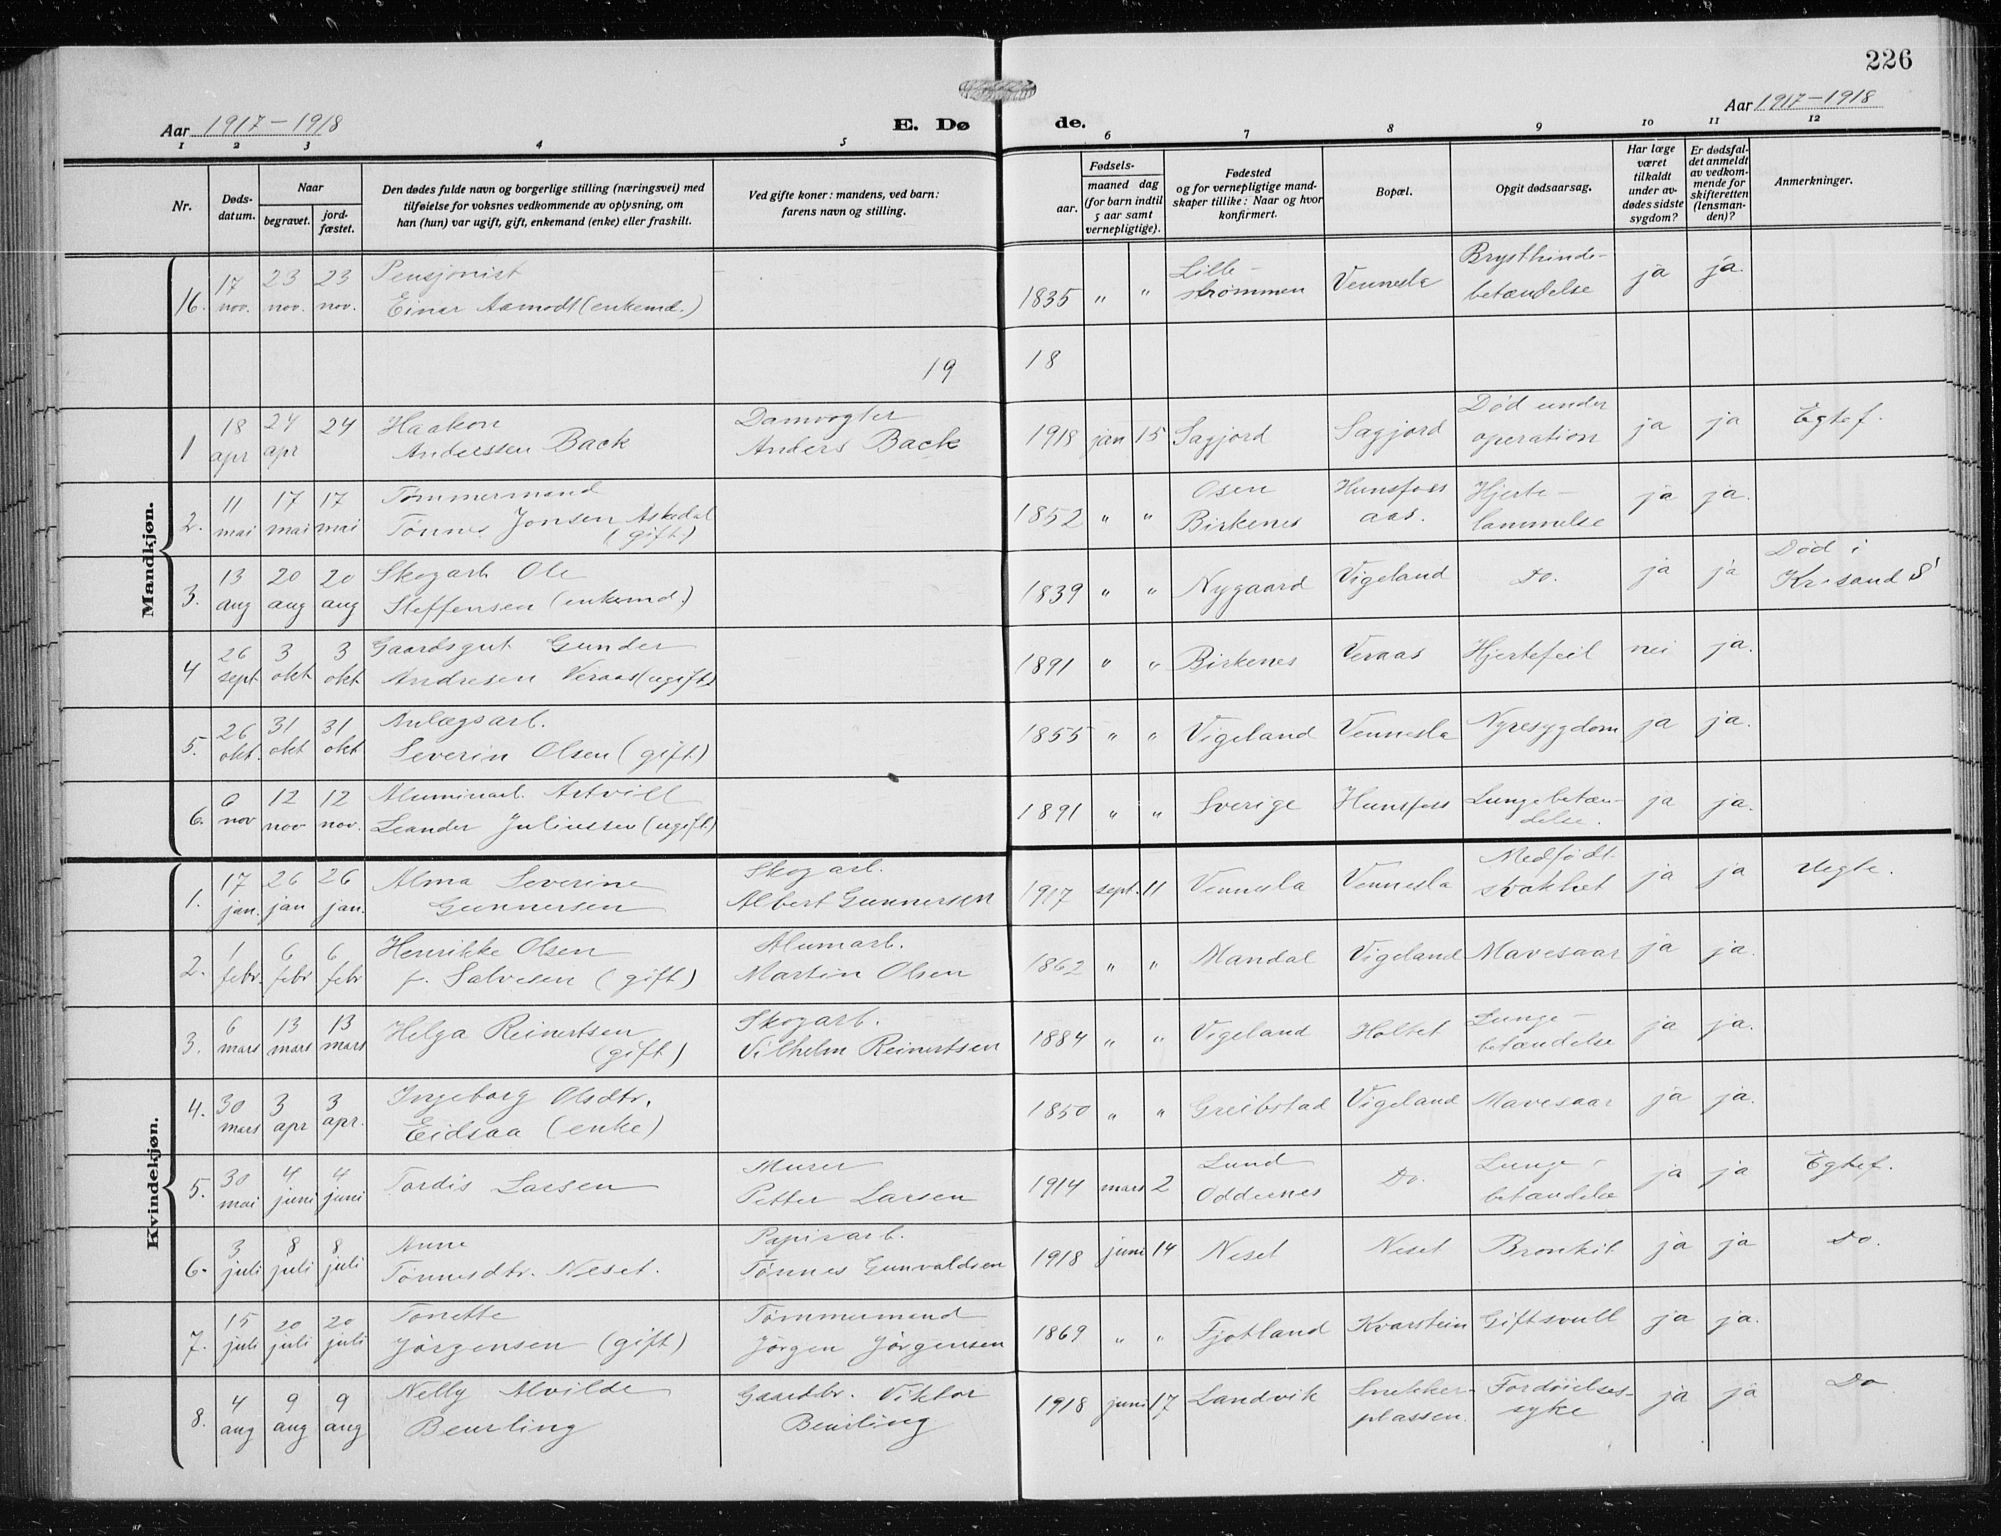 226
Aar 1917-1918
E. Dø de.
Aar 1917-1918
1 2 3 4 5 6 7 8 9 10 11 12
Nr.
Døds-
datum.
Naar
begravet.
jord-
fæstet.
Den dødes fulde navn og borgerlige stilling (næringsvei) med
tilføielse for voksnes vedkommende av oplysning, om
han (hun) var ugift, gift, enkemand (enke) eller fraskilt.
Ved gifte koner: mandens, ved barn:
farens navn og stilling.
Fødsels-
aar.
maaned dag
(for barn indtil
5 aar samt
vernepligtige).
Fødested
og for vernepligtige mand-
skaper tillike: Naar og hvor
konfirmert.
Bopæl.
Opgit dødsaarsag.
Har læge
været
tilkaldt
under av-
dødes sidste
sygdom?
Er dødsfal-
det anmeldt
av vedkom-
mende for
skifteretten
(lensman-
den)?
Anmerkninger.
Mandkjøn.
17 23 23 Pensjonist Lille- Brysthinde-
16. nov. nov. nov. Einar Aamodt (enkemd.) 1835 " " strømmen Vennesla betændelse ja ja.
19 18
18 24 24 Haakon Damvogter Død under
1 apr apr Anderssen Back Anders Back 1918 jan 15 Sagjord Sagjord operation ja ja Egtef.
11 17 17 Tømmermand Osen Hunsfoss Hjerte-
2. mai mai mai Tønnes Jonsen Askedal (gift) 1852 " " Birkenes aas. lammelse ja ja.
13 20 20 Skogarb. Ole Død i
3. aug aug aug Steffensen (enkemd.) 1839 " " Nygaard Vigeland Do. ja ja Kr.sand S
26 3 3 Gaardsgut Gunder
4 sept okt okt Andresen Veraas (ugift) 1891 " " Birkenes Veraas Hjertefeil nei ja.
26 31 31 Anlægsarb.
5. okt. okt okt Severin Olsen (gift) 1855 " " Vigeland Vennesla Nyresygdom ja ja.
12 12 Aluminarb. Artvill Lungebetæn-
6. nov nov nov. Leander Juliussen (ugift) 1891 " " Sverige Hunsfoss delse. ja ja.
Kvindekjøn.
17 26 26 Alma Severine Skogarb. Medfødt
1. jan. jan jan. Gunnersen Albert Gunnersen 1917 sept. 11 Vennesla Vennesla svakhet ja ja Uegte.
1 6 6 Henrikke Olsen Alumarb.
2. febr. febr febr f. Salvesen (gift) Martin Olsen 1862 " " Mandal Vigeland Mavesaar ja ja.
6 13 13 Helga Reinertsen Skogarb. Lunge-
3. mars mars mars (gift) Vilhelm Reinertsen 1884 " " Vigeland Holtet betændelse ja ja.
4. 30 3 3 Ingeborg Olsdtr.
mars apr apr. Eidsaa (enke) 1850 " " Greibstad Vigeland Mavesaar ja ja.
30 4 4 Murer Lund Lunge-
5. mai juni juni Tordis Larsen Petter Larsen 1914 mars 2 Oddernes Do. betændelse ja ja Egtef.
3 8 8 Anne Papirarb.
6. juli juli juli Tønnesdtr. Neset. Tønnes Gunvaldsen 1918 juni 14 Neset Neset Bronkit ja ja Do.
15 20 20 Tonette Tømmermand
7. juli juli juli Jørgensen (gift) Jørgen Jørgensen 1869 " " Fjotland Kvarstein Giftsvull ja ja.
4 9 9 Nelly Alvilde Gaardbr. Viktor Snekker- Fordøielses-
8. aug aug aug Beurling Beurling 1918 juni 17 Landvik plassen. syke ja ja Do